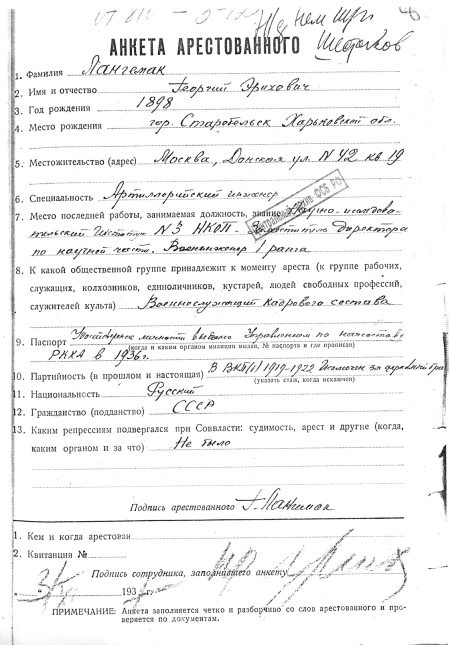 АНКЕТА АРЕСТОВАННОГО
1. Фамилия Лангемак
2. Имя и отчество Георгий Эрихович
3. Год рождения 1898
4. Место рождения гор. Старобельск Харьковской обл.
5. Местожительство (адрес) Москва, Донская ул. N 42 кв 19
6. Специальность Артиллерийский инженер
7. Место последней работы, занимаемая должность, звание Научно-исследова-
тельский Институт N 3 НКОП - Заместитель директора
по научной части. Военинженер I ранга
8. К какой общественной группе принадлежит к моменту ареста (к группе рабочих,
служащих, колхозников, единоличников, кустарей, людей свободных профессий,
служителей культа) Военнослужащий кадрового состава
9. Паспорт Удостверение личности выдано Управлением по начсоставу
(когда и каким органом милиции выдан, № паспорта и где прописан)
РККА в 1936 г.
10. Партийность (в прошлом и настоящая) В ВКП(б) 1919-1922 Исключен за церковный брак
(указать стаж, когда исключен)
11. Национальность Русский
12. Гражданство (подданство) СССР
13. Каким репрессиям подвергался при Соввласти: судимость, арест и другие (когда,
каким органом и за что) Не было
Подпись арестованного Г. Лангемак
1. Кем и когда арестован
2. Квитанция №
Подпись сотрудника, заполнившего анкету
193
ПРИМЕЧАНИЕ: Анкета заполняется четко и разборчиво со слов арестованного и про-
веряется по документам.